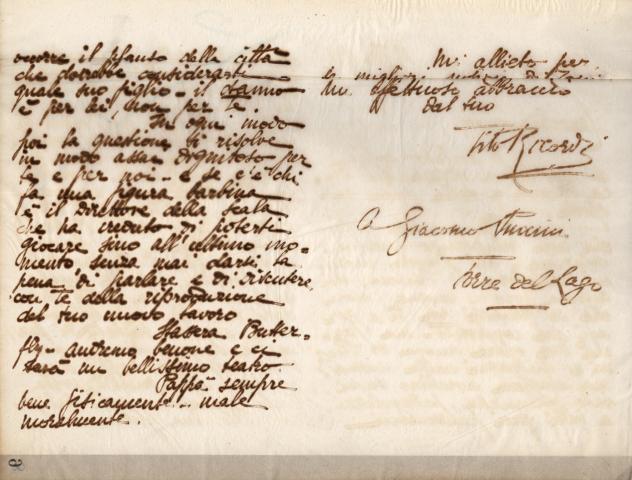 il plauso della città
che dovrebbe considerarti
quale suo figlio - il danno
è per lei, non per te.
In ogni modo
poi la questione si risolve
in modo assai dignitoso per
te e per noi - e se c'è chi
fa una figura barbina
è il Direttore della Scala
che ha creduto di poterti
giocare sino all'ultimo mo-
mento, senza mai darsi la
pena di parlare e di discutere
con te della riproduzione
del tuo nuovo lavoro
Stassera Butter-
fly - andremo benone e ci
sarà un bellissimo teatro
Pappà sempre
bene fisicamente - male
moralmente.
Mi allieto per
le migliori notizie di
Un affettuoso abbraccio
dal tuo
Tito Ricordi
A Giacomo Puccini
Torre del Lago